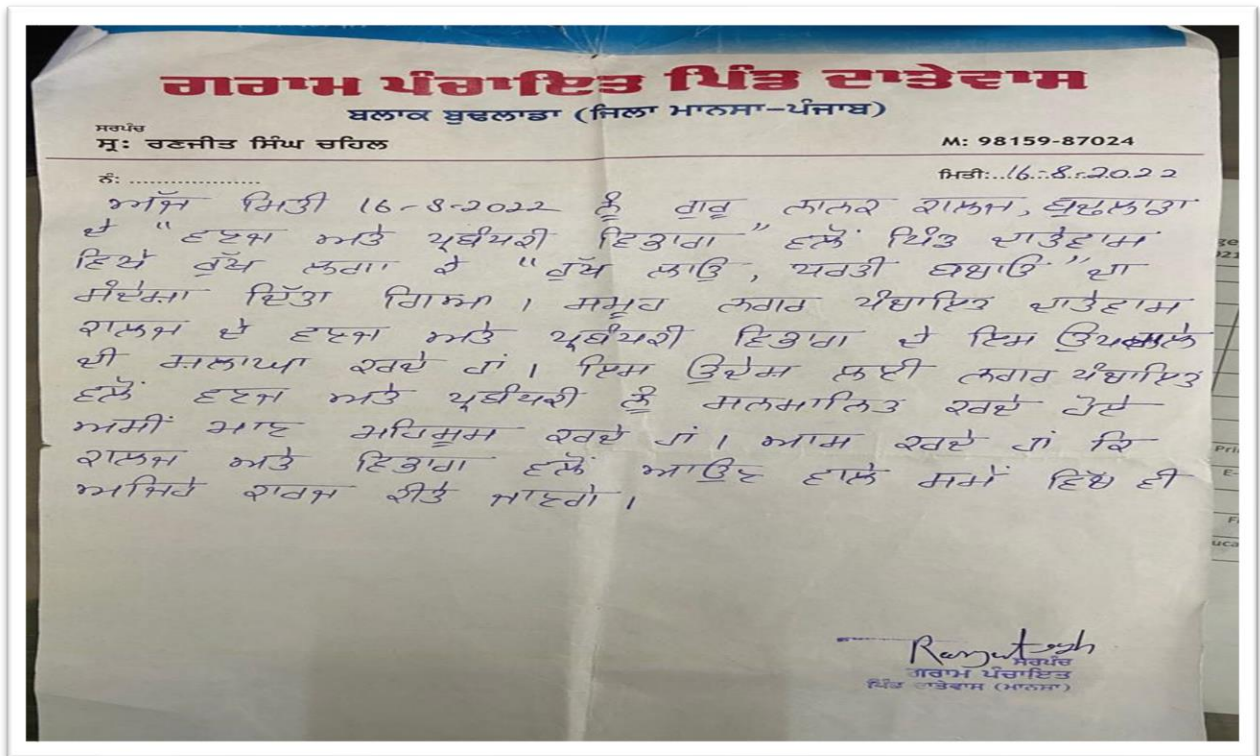 ਗਰਾਮ ਪੰਚਾਇਤ ਪਿੰਡ ਦਾਤੇਵਾਸ
ਬਲਾਕ ਬੁਢਲਾਡਾ (ਜਿਲਾ ਮਾਨਸਾ-ਪੰਜਾਬ)
ਸਰਪੰਚ
ਸ੍ਰ: ਰਣਜੀਤ ਸਿੰਘ ਚਹਿਲ M: 98159-87024
ਨੰ: .................. ਮਿਤੀ: 16-8-2022
ਅੱਜ ਮਿਤੀ 16-8-2022 ਨੂੰ ਗੁਰੂ ਨਾਨਕ ਕਾਲਜ, ਬੁਢਲਾਡਾ
ਦੇ "ਵਣਜ ਅਤੇ ਪ੍ਰਬੰਧਕੀ ਵਿਭਾਗ" ਵਲੋਂ ਪਿੰਡ ਦਾਤੇਵਾਸ
ਵਿਖੇ ਰੁੱਖ ਲਗਾ ਕੇ "ਰੁੱਖ ਲਾਉ, ਧਰਤੀ ਬਚਾਉ" ਦਾ
ਸੰਦੇਸ਼ਾ ਦਿੱਤਾ ਗਿਆ। ਸਮੂਹ ਨਗਰ ਪੰਚਾਇਤ ਦਾਤੇਵਾਸ
ਕਾਲਜ ਦੇ ਵਣਜ ਅਤੇ ਪ੍ਰਬੰਧਕੀ ਵਿਭਾਗ ਦੇ ਇਸ
ਦੀ ਸ਼ਲਾਘਾ ਕਰਦੇ ਹਾਂ। ਇਸ ਉਦੇਸ਼ ਲਈ ਨਗਰ ਪੰਚਾਇਤ
ਵਲੋਂ ਵਣਜ ਅਤੇ ਪ੍ਰਬੰਧਕੀ ਨੂੰ ਸਨਮਾਨਿਤ ਕਰਦੇ ਹੋਏ
ਅਸੀਂ ਮਾਣ ਮਹਿਸੂਸ ਕਰਦੇ ਹਾਂ। ਆਸ ਕਰਦੇ ਹਾਂ ਕਿ
ਕਾਲਜ ਅਤੇ ਵਿਭਾਗ ਵਲੋਂ ਆਉਣ ਵਾਲੇ ਸਮੇਂ ਵਿੱਚ ਵੀ
ਅਜਿਹੇ ਕਾਰਜ ਕੀਤੇ ਜਾਣਗੇ।
ਸਰਪੰਚ
ਗਰਾਮ ਪੰਚਾਇਤ
ਪਿੰਡ ਦਾਤੇਵਾਸ (ਮਾਨਸਾ)